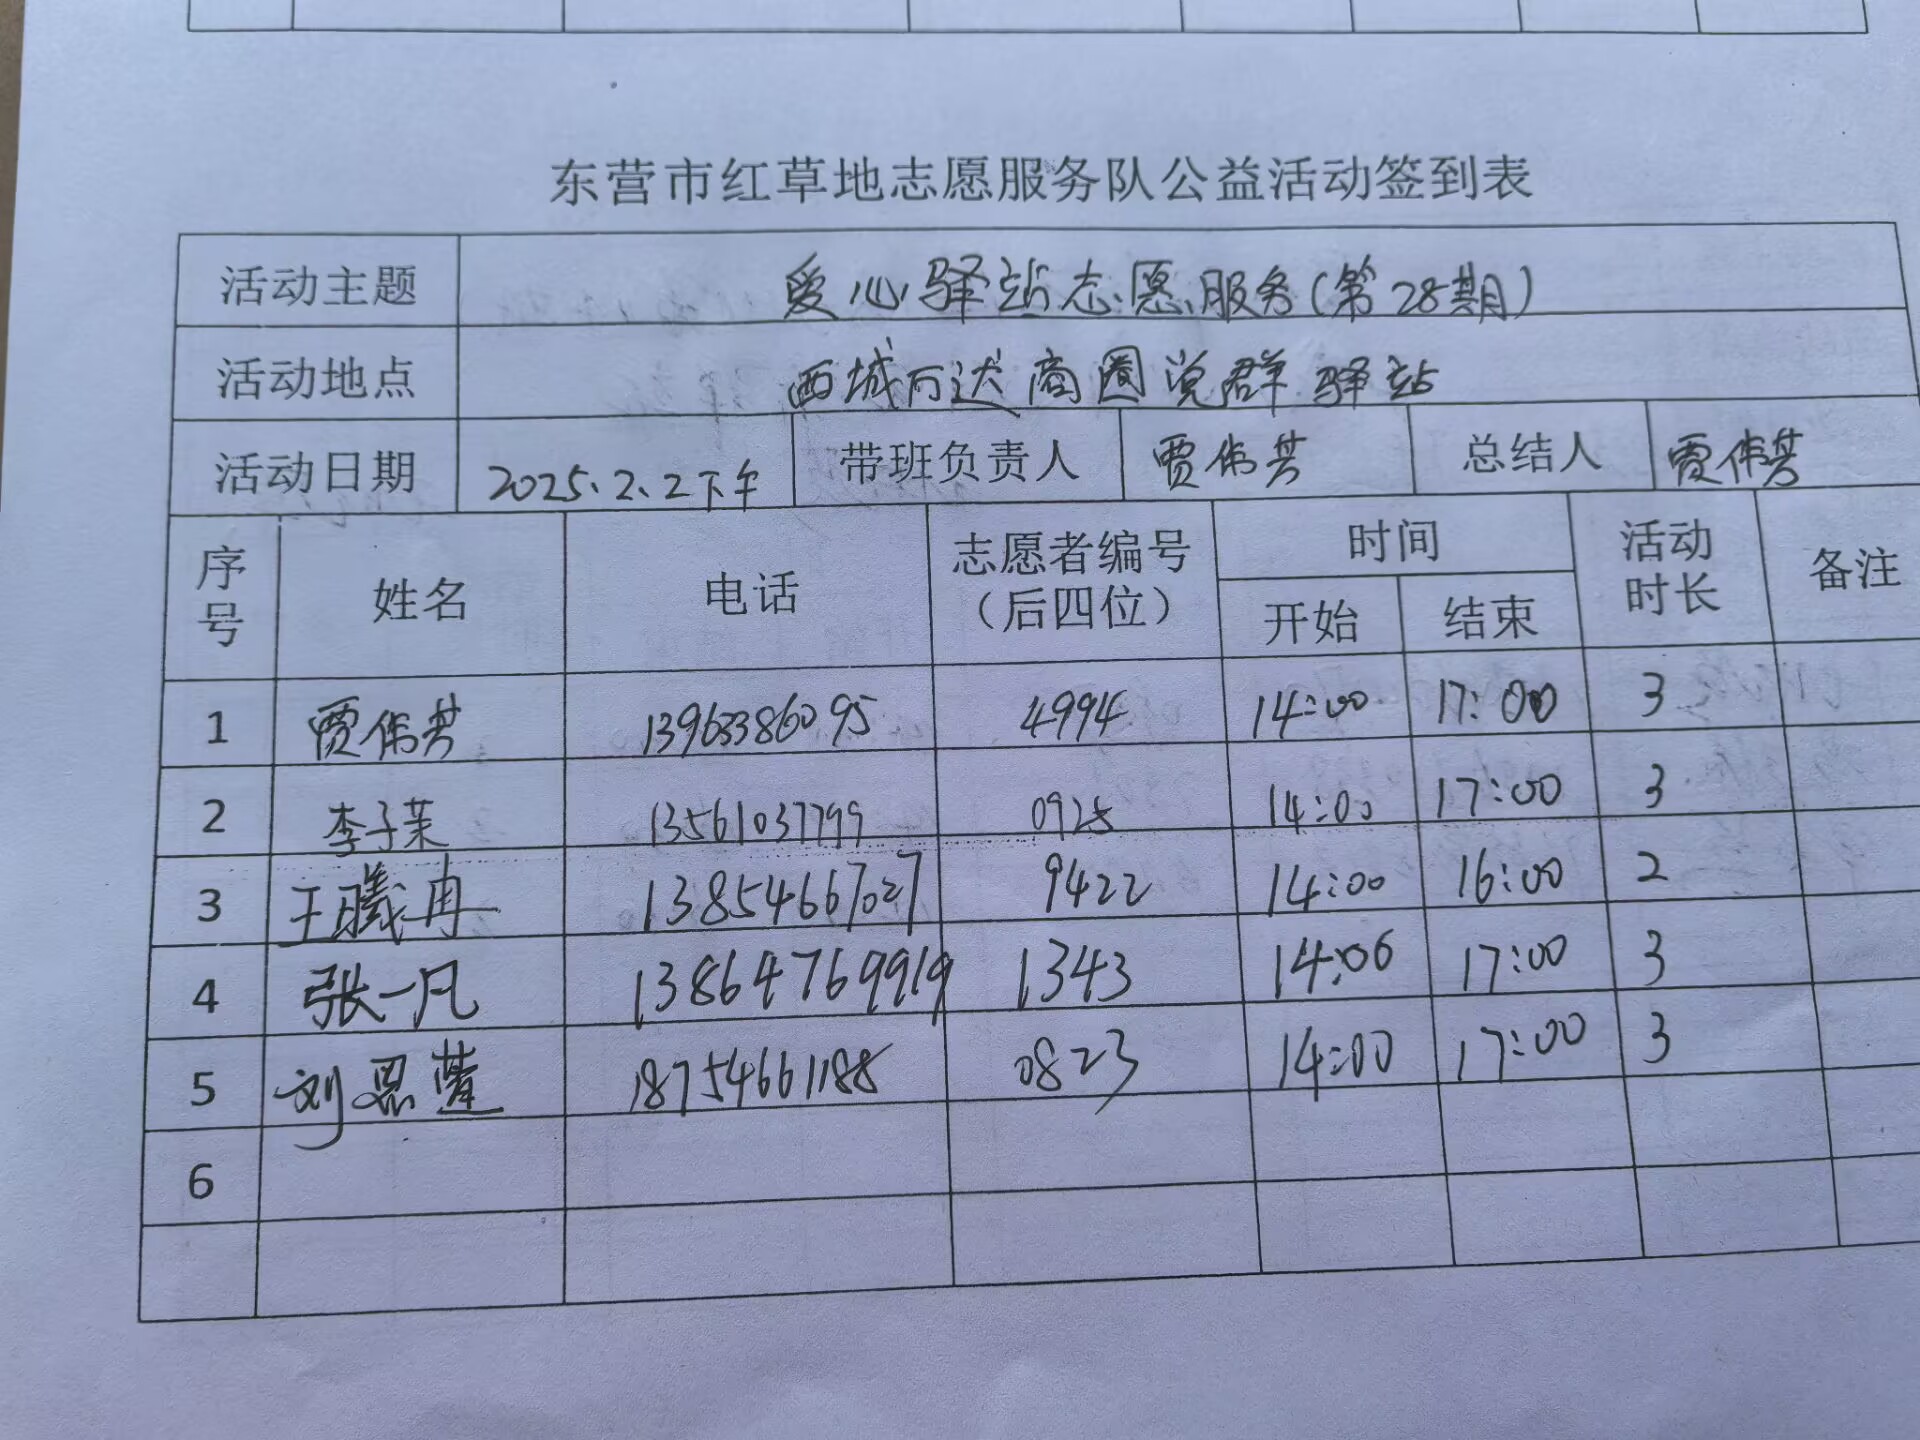 东营市红草地志愿服务队公益活动签到表
活动主题 爱心驿站志愿服务(第28期)
活动地点 西城万达商圈党群驿站
活动日期 2025.2.2下午 带班负责人 贾伟芳 总结人 贾伟芳
序号 姓名 电话 志愿者编号(后四位) 时间 开始 结束 活动时长 备注
1 贾伟芳 13963386095 4994 14:00 17:00 3
2 李子茉 13561037799 0925 14:00 17:00 3
3 王曦冉 13854667027 9422 14:00 16:00 2
4 张一凡 13864769919 1343 14:00 17:00 3
5 刘恩 18754661188 0823 14:00 17:00 3
6